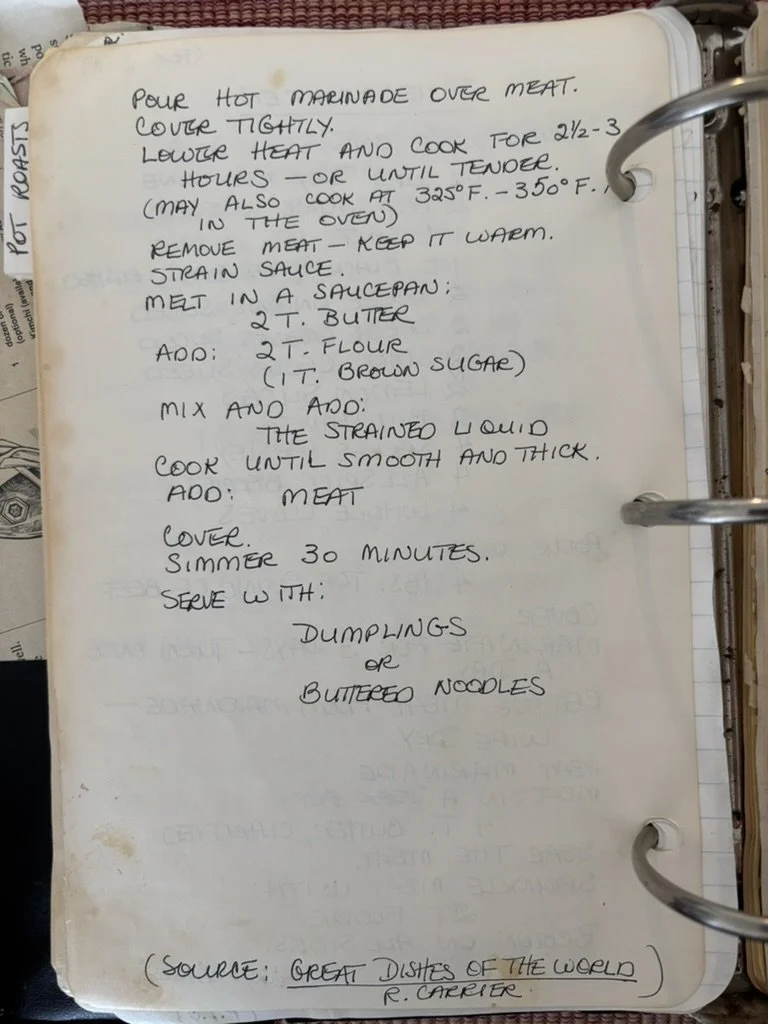 POUR HOT MARINADE OVER MEAT.
COVER TIGHTLY.
LOWER HEAT AND COOK FOR 2½-3
HOURS — OR UNTIL TENDER.
(MAY ALSO COOK AT 325°F. - 350°F.
IN THE OVEN)
REMOVE MEAT — KEEP IT WARM.
STRAIN SAUCE.
MELT IN A SAUCEPAN:
2 T. BUTTER
ADD: 2 T. FLOUR
(1 T. BROWN SUGAR)
MIX AND ADD:
THE STRAINED LIQUID
COOK UNTIL SMOOTH AND THICK.
ADD: MEAT
COVER.
SIMMER 30 MINUTES.
SERVE WITH:
DUMPLINGS
OR
BUTTERED NOODLES
(SOURCE: GREAT DISHES OF THE WORLD)
R. CARRIER
POT ROASTS
(optional)